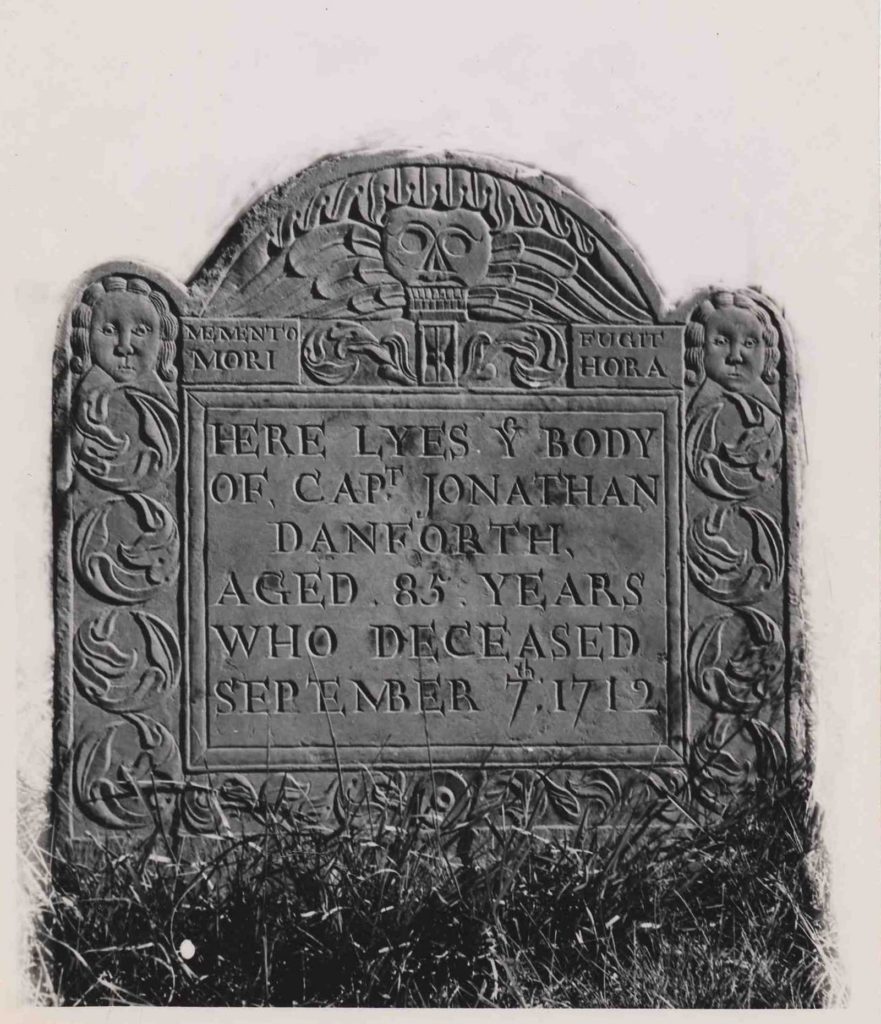 MEMENTO
MORI
FUGIT
HORA
HERE LYES Yᵉ BODY
OF, CAPᵀ. JONATHAN
DANFORTH,
AGED . 85 : YEARS
WHO DECEASED
SEPTEMBER 7ᵗʰ. 1712